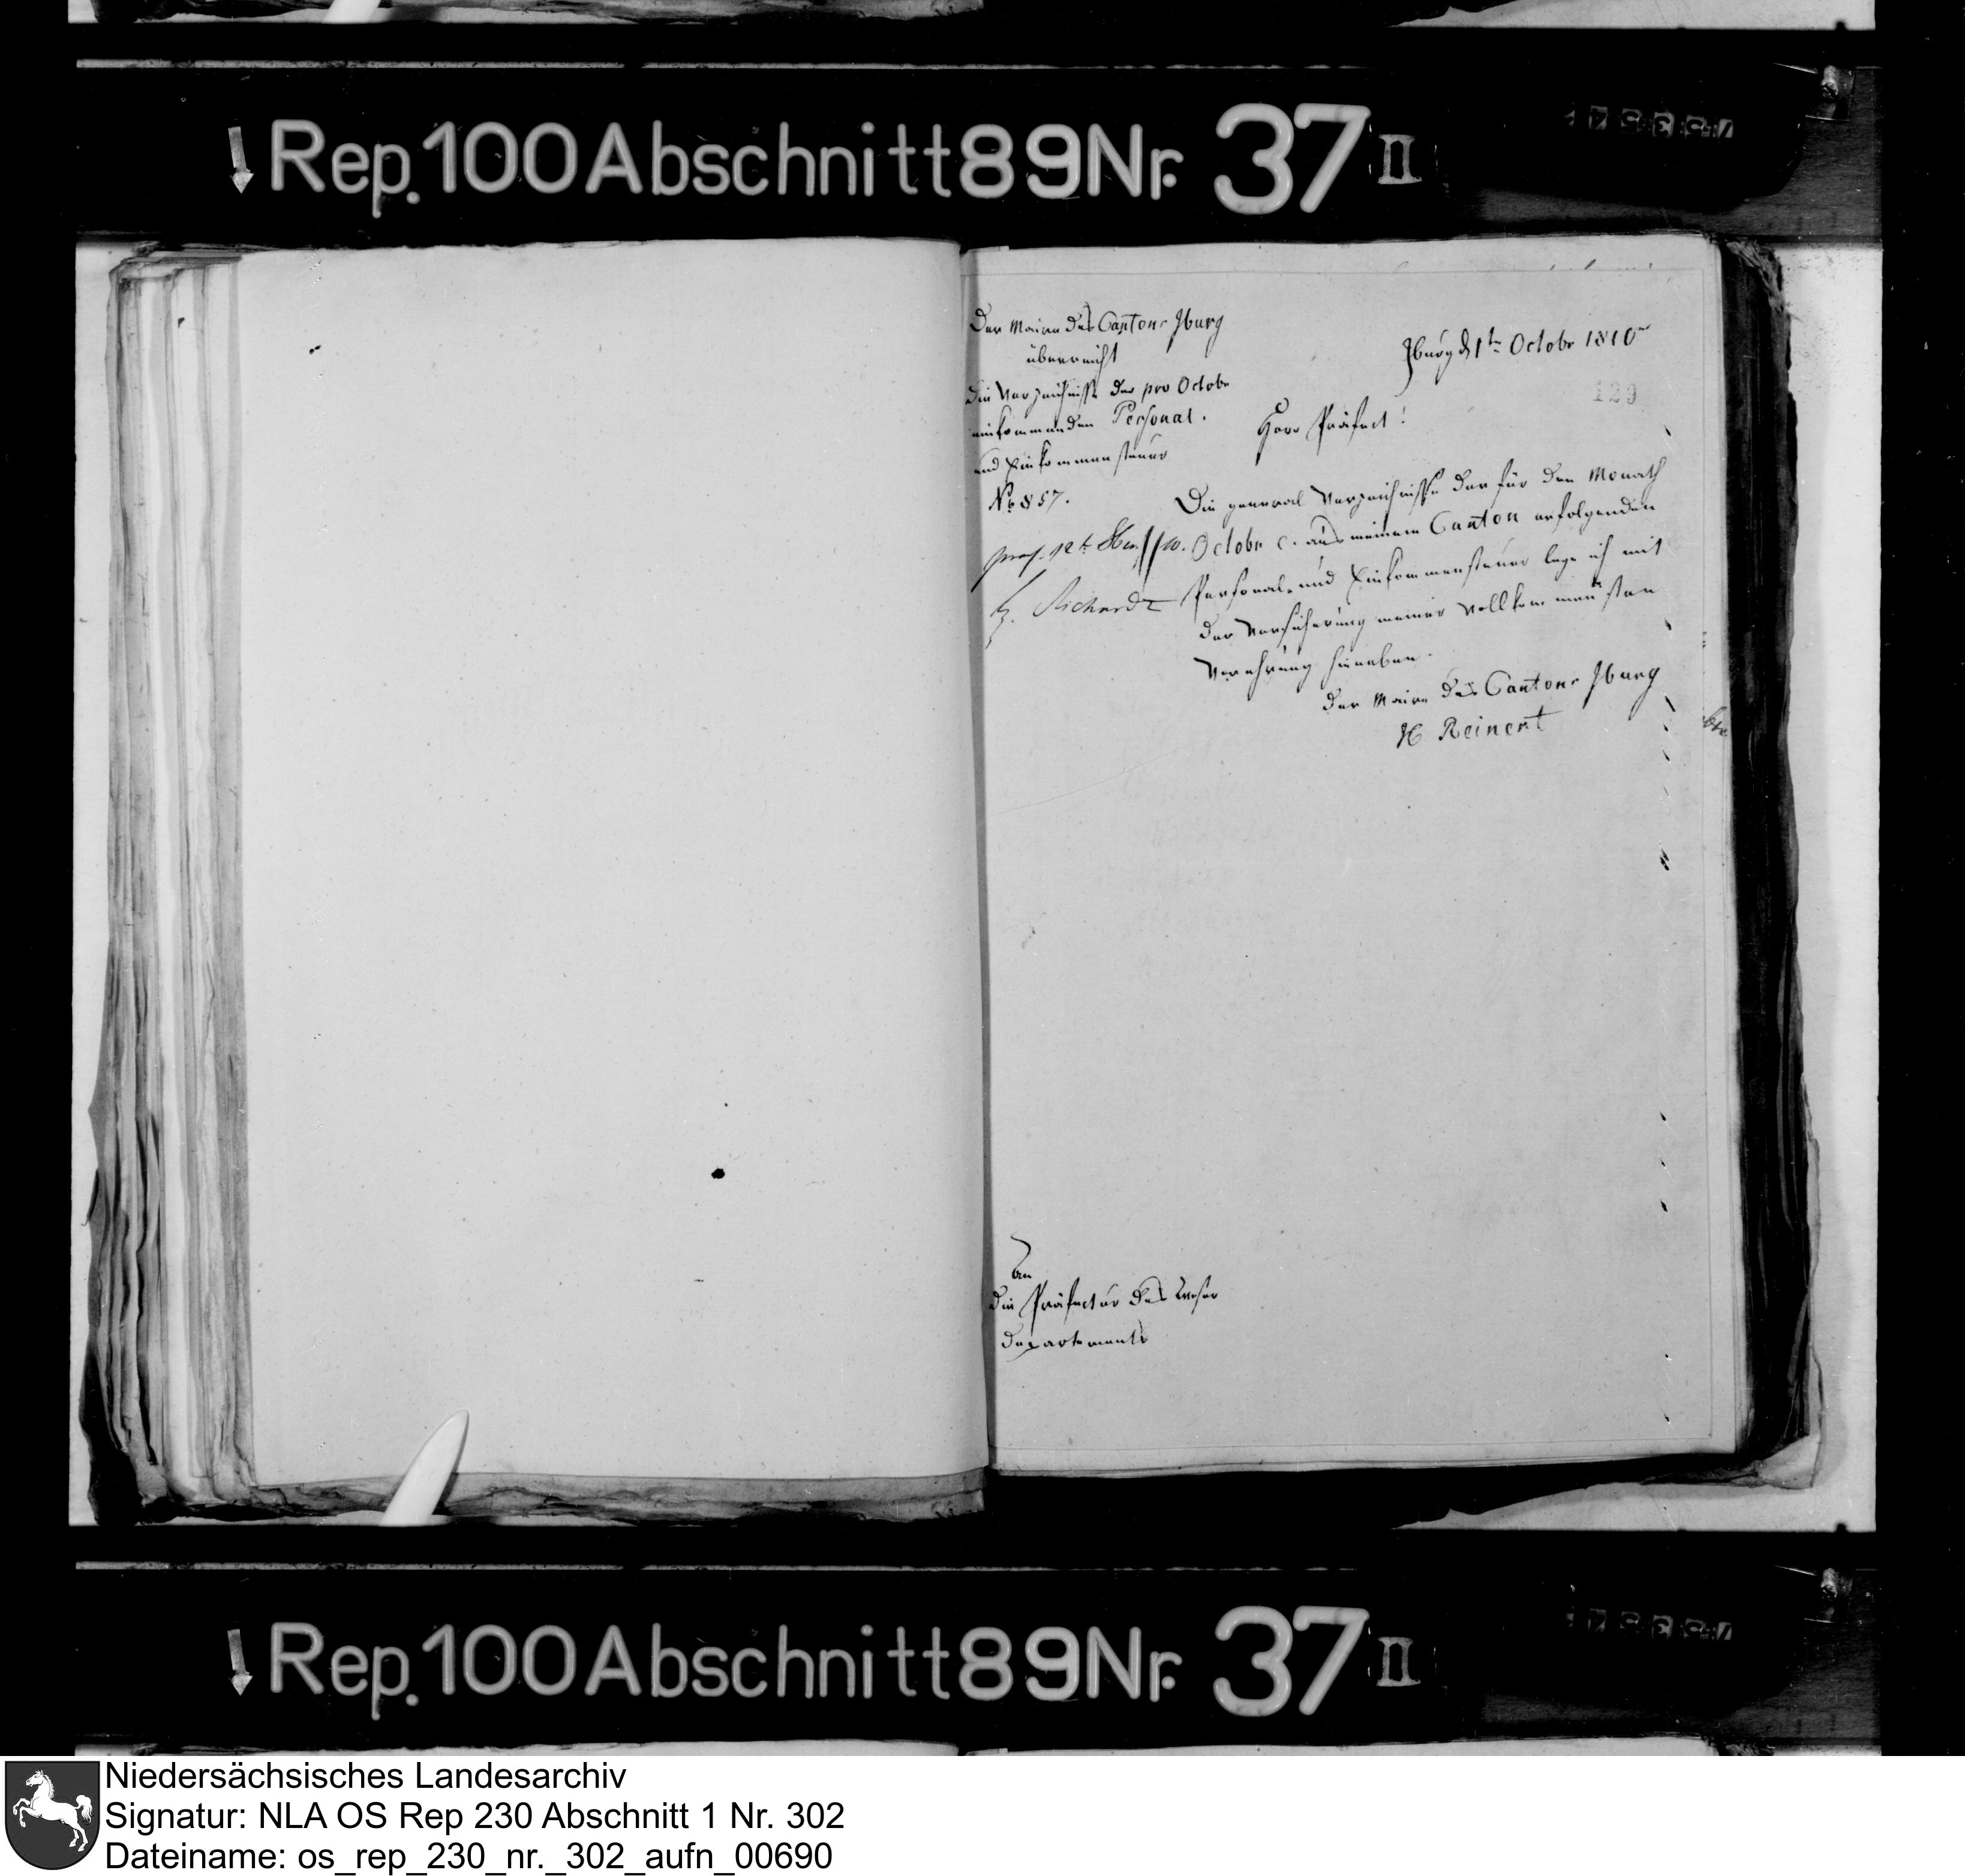 Rep. 100 Abschnitt 89 Nr. 37 II
Der Maire des Cantons Iburg
überreicht
die Verzeichnisse der pro Octobr
einkommenden Personal.
und Einkommensteuer
No 857.
Iburg d 1ten Octobr 1810
129
Herr Präfect!
Die general Verzeichnisse der für den Monath
Octobr c. aus meinem Canton erfolgenden
Personal- und Einkommensteuer lege ich mit
der Versicherung meiner vollkommensten
Verehrung hieneben.
Der Maire des Cantons Iburg
H Reinert
Richard
An
die Präfectur des Weser
Departements
Rep. 100 Abschnitt 89 Nr. 37 II
Niedersächsisches Landesarchiv
Signatur: NLA OS Rep 230 Abschnitt 1 Nr. 302
Dateiname: os_rep_230_nr._302_aufn_00690